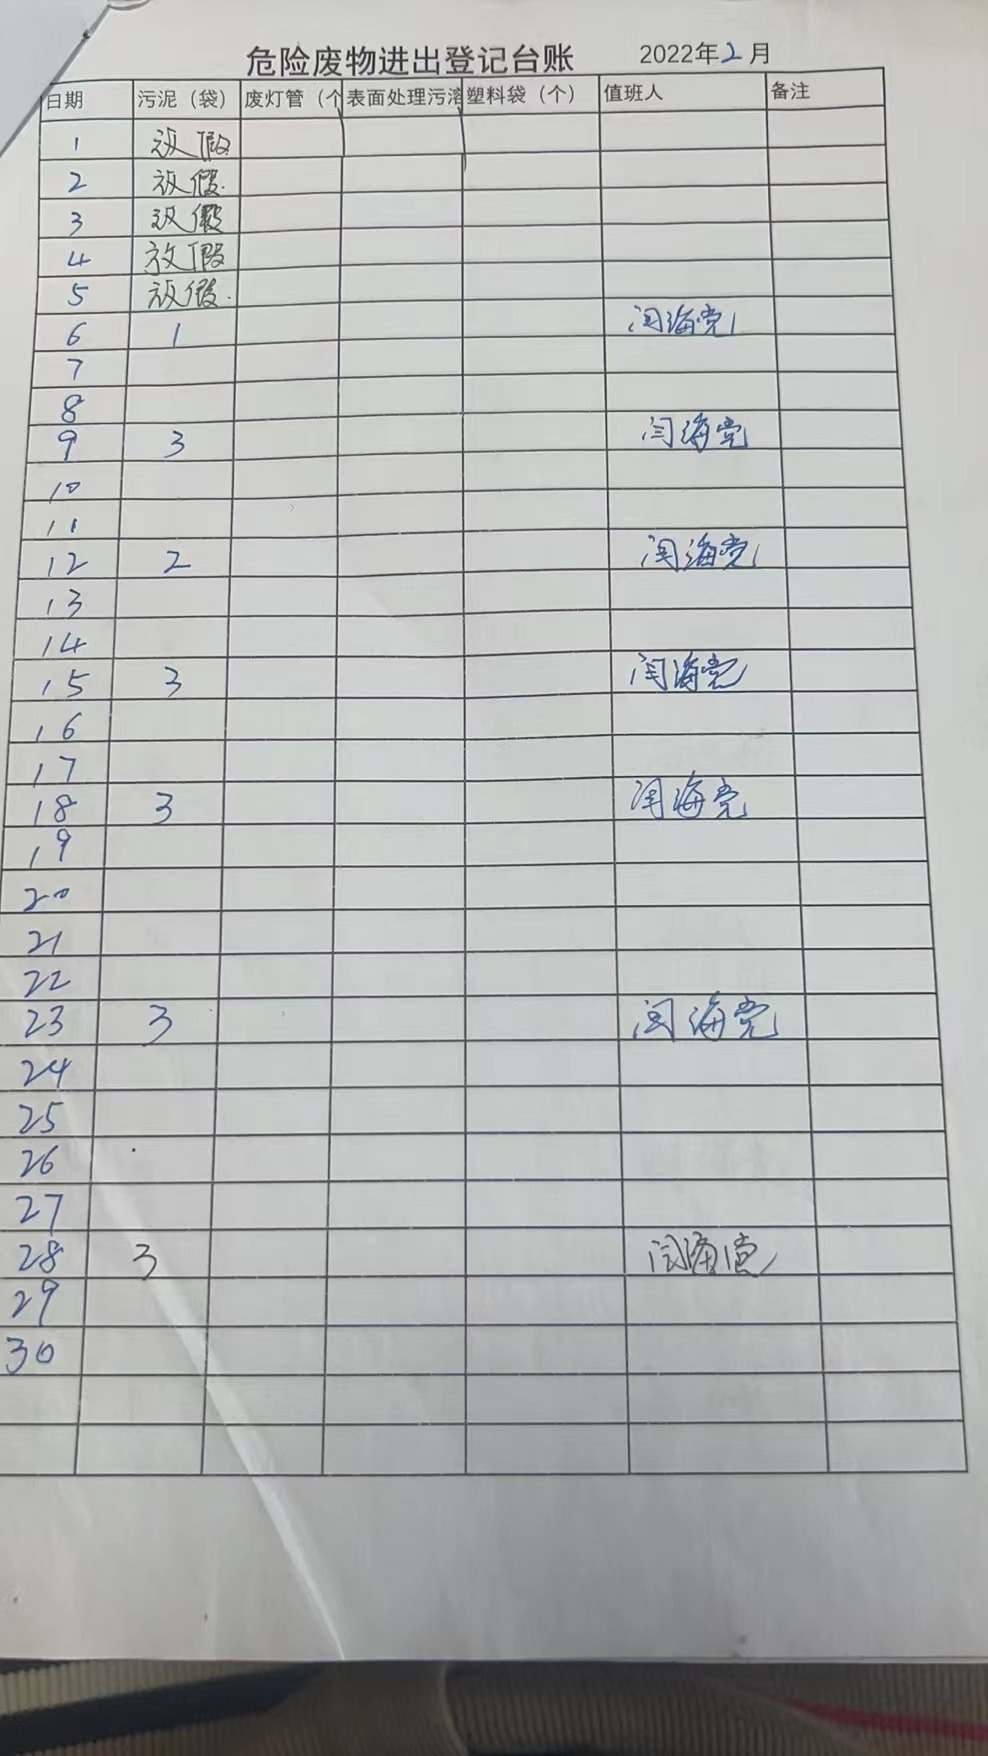 危险废物进出登记台账 2022年2月
日期 污泥（袋） 废灯管（个 表面处理污溶 塑料袋（个） 值班人 备注
1 放假
2 放假
3 放假
4 放假
5 放假
6 1 闫海党
7
8
9 3 闫海党
10
11
12 2 闫海党
13
14
15 3 闫海党
16
17
18 3 闫海党
19
20
21
22
23 3 闫海党
24
25
26
27
28 3 闫海
29
30